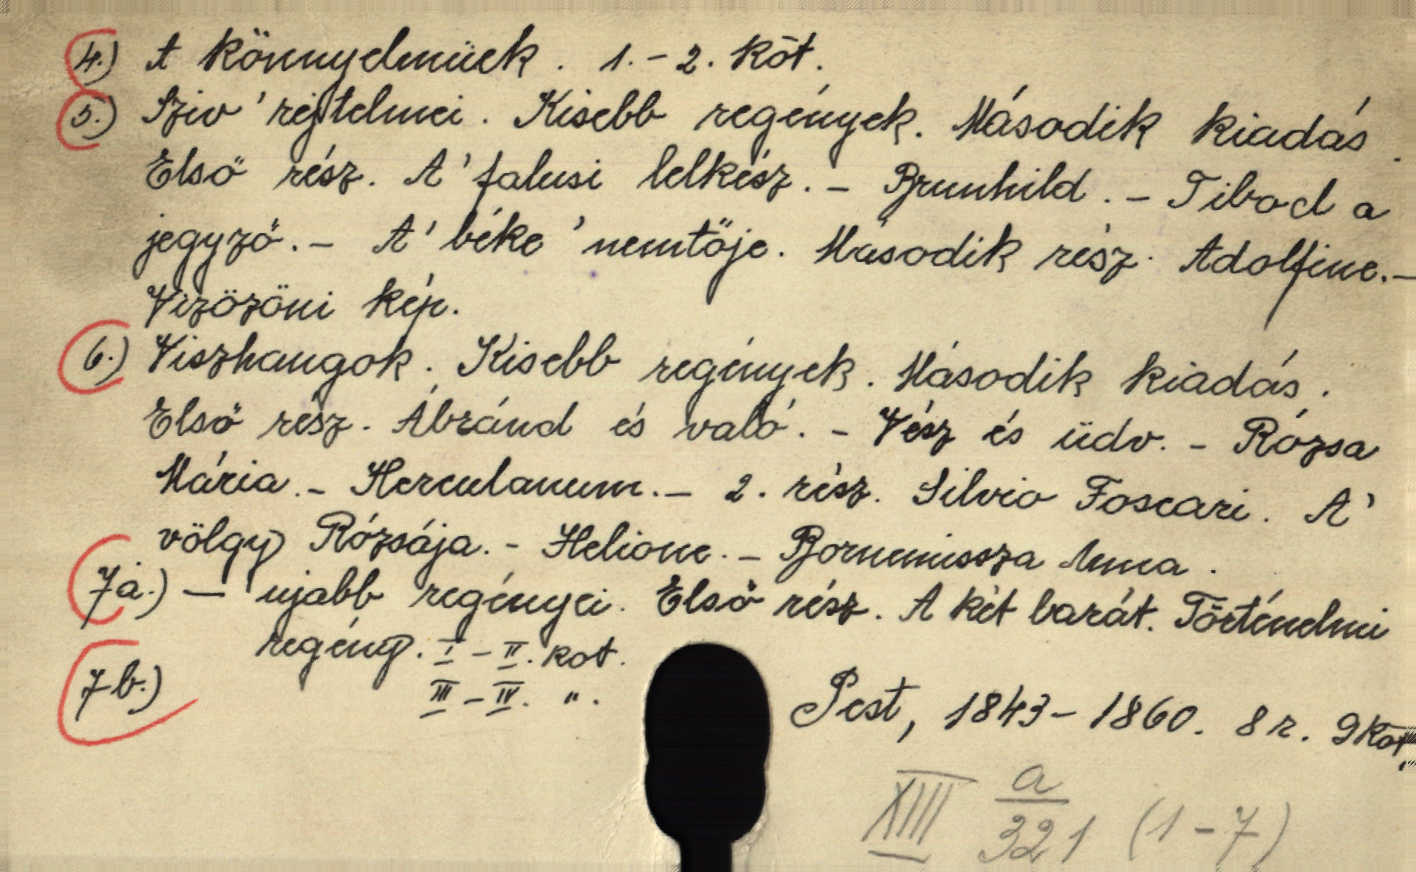 4.) A könnyelmüek. 1.-2. Köt.
5.) Sziv' rejtelmei. Kisebb regények. Második kiadás.
Első rész. A' falusi lelkész. - Brunhild. - Tibod a
jegyző. - A' béke' nemtője. Második rész. Adolfine. -
Vizözöni kép.
6.) Viszhangok. Kisebb regények. Második kiadás.
Első rész. Ábránd és való. - Vész és üdv. - Rózsa
Mária. - Herculanum. - 2. rész. Silvio Foscari. A'
völgy Rózsája. - Helione. - Bornemissza Anna.
7a.) — ujabb regényei. Első rész. A két barát. Történelmi
regény. I - II. kot.
7b.) III - IV. ".
Pest, 1843-1860. 8 r. 9 Köt.
XIII a/321 (1-7)